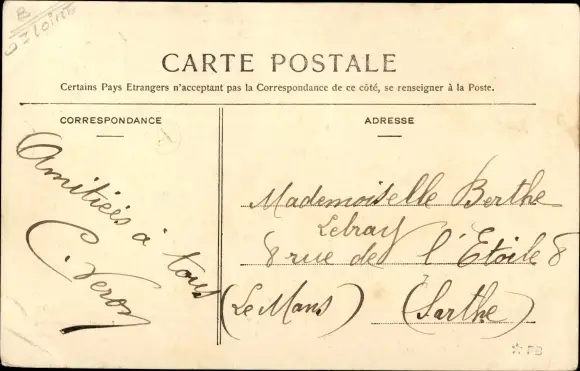 CARTE POSTALE
Certains Pays Etrangers n'acceptant pas la Correspondance de ce côté, se renseigner à la Poste.
CORRESPONDANCE
Amitiées à tous
C. Veron
ADRESSE
Mademoiselle Berthe
Lebray
8 rue de l'Etoile 8
(Le Mans) (Sarthe)
*PB